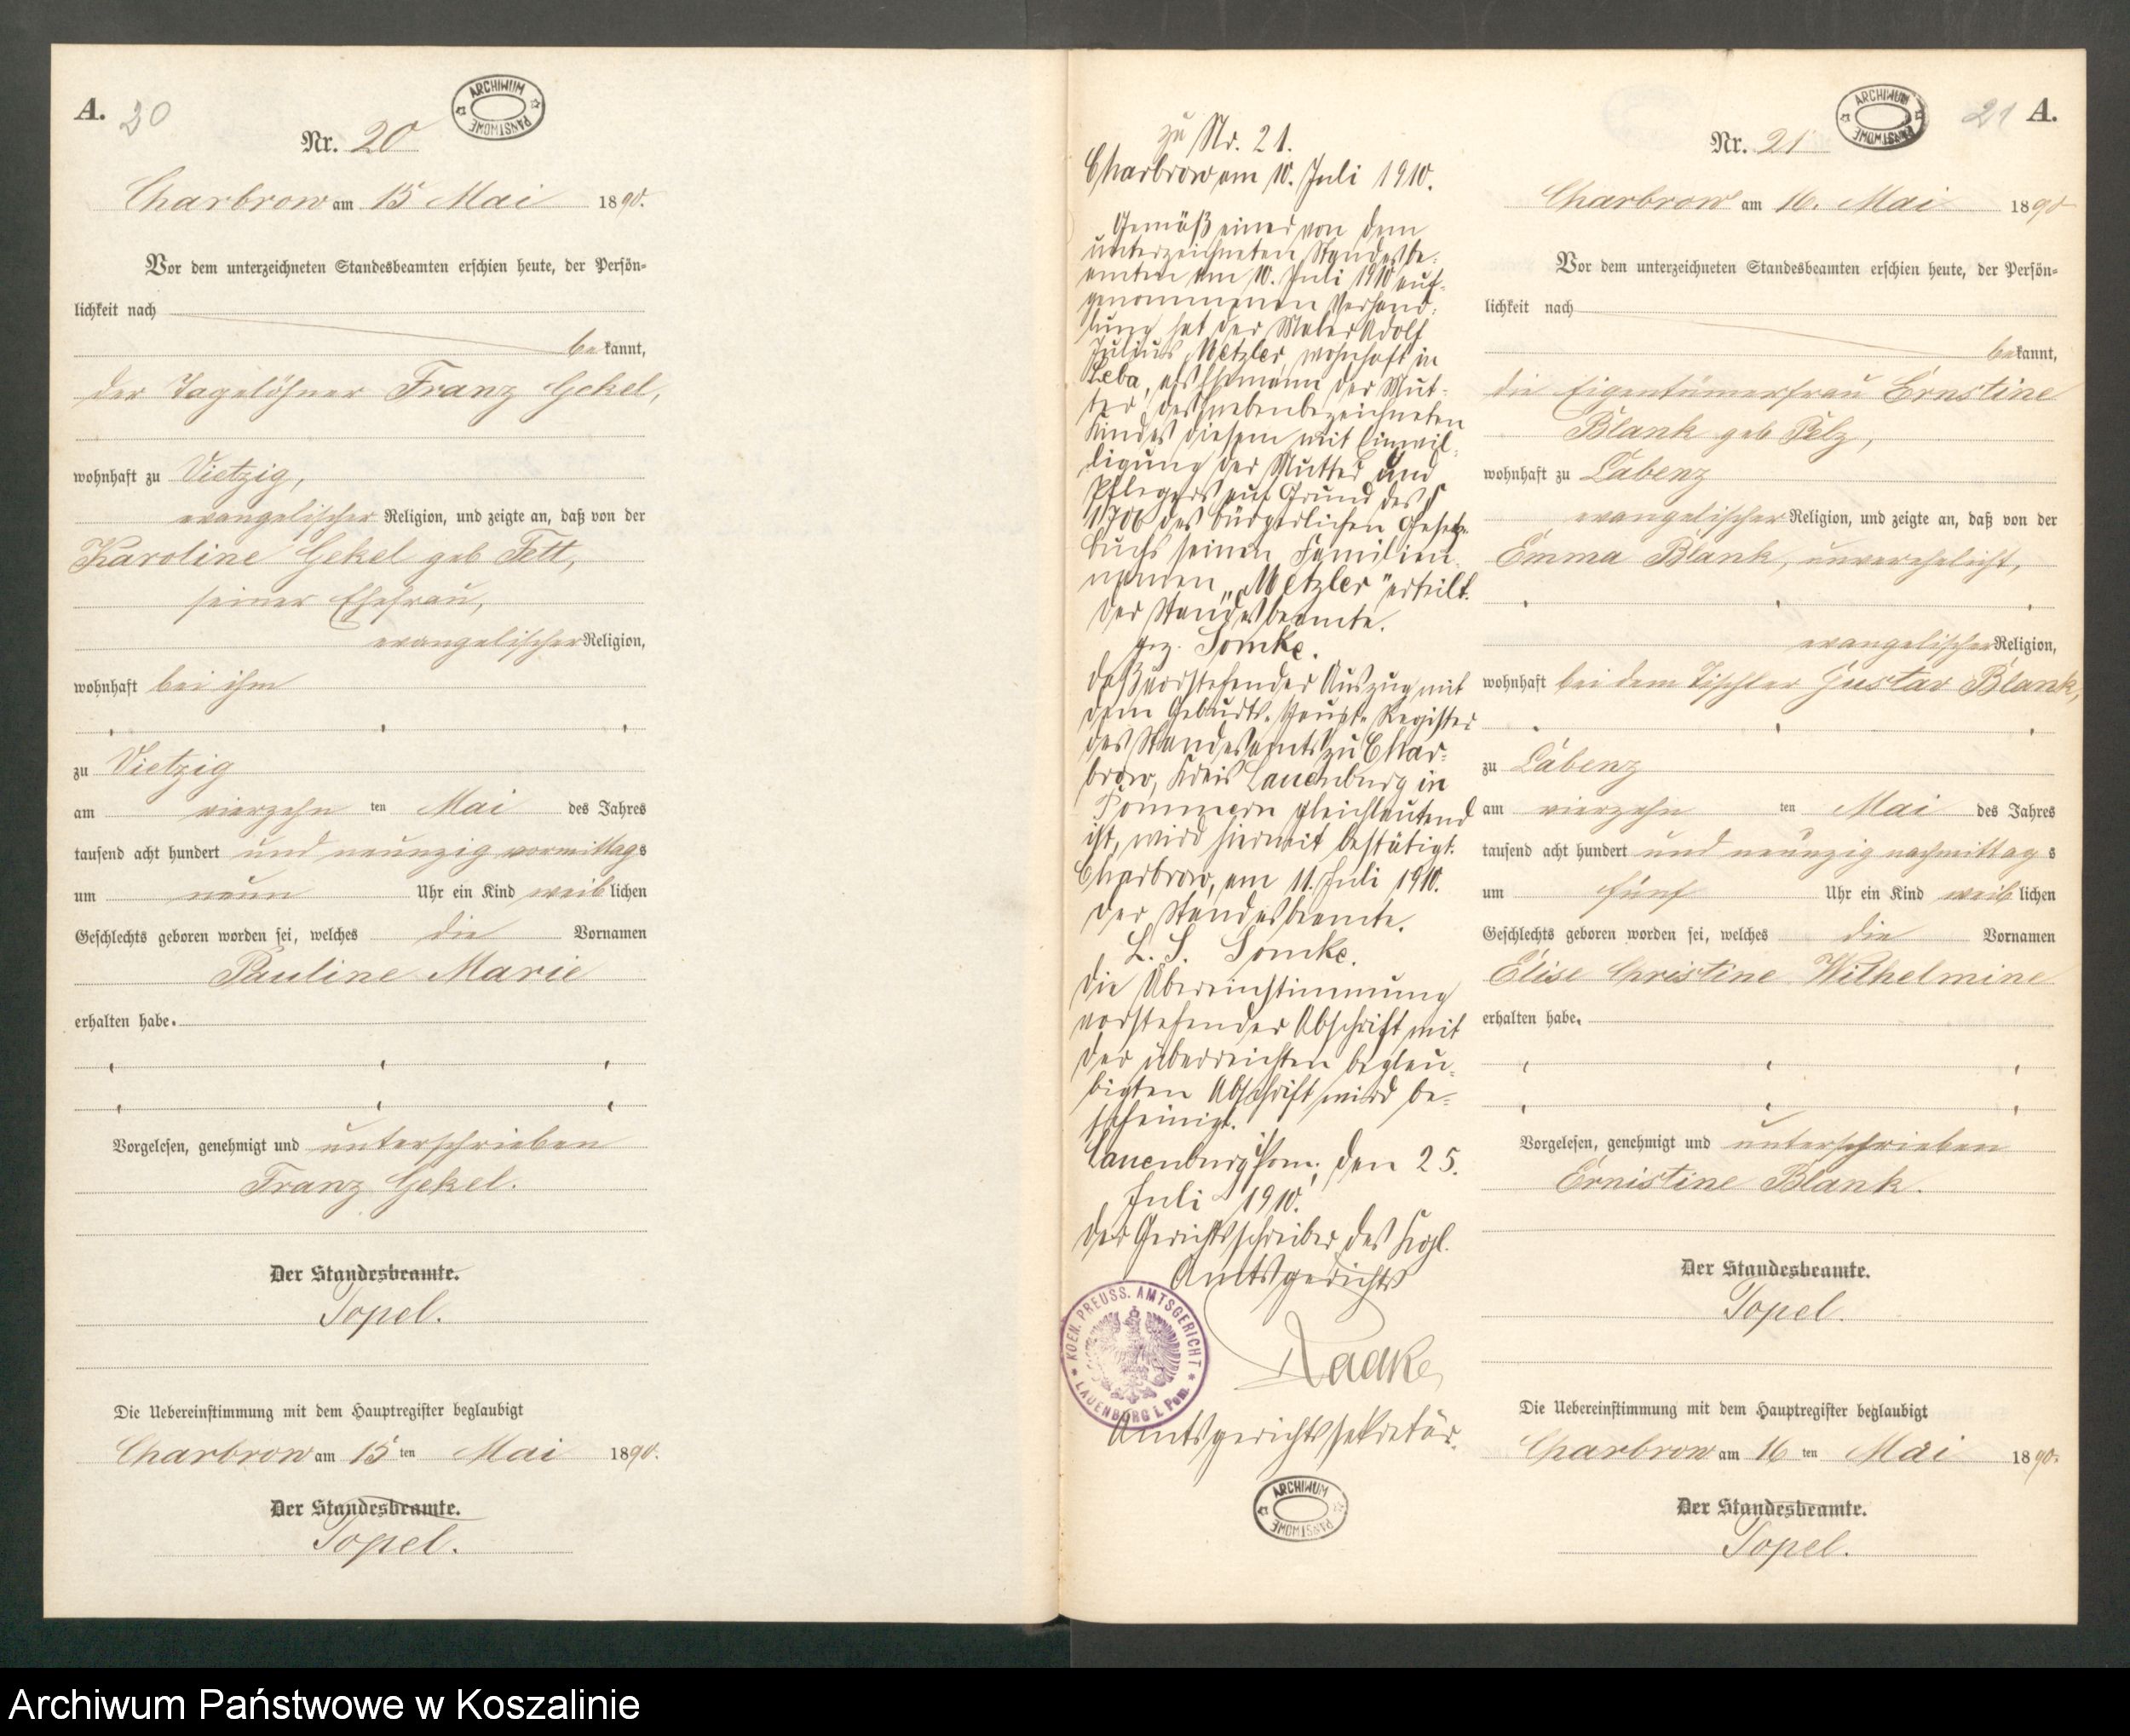 A. 20
ARCHIWUM PAŃSTWOWE
Nr. 20
Charbrow am 15 Mai 1890.
Vor dem unterzeichneten Standesbeamten erschien heute, der Persön-
lichkeit nach
bekannt,
der Tagelöhner Franz Gekel,
wohnhaft zu Vietzig,
evangelischer Religion, und zeigte an, daß von der
Karoline Gekel geb Tett,
seiner Ehefrau,
evangelischer Religion,
wohnhaft bei ihm
zu Vietzig
am vierzehn ten Mai des Jahres
tausend acht hundert und neunzig vormittags
um neun Uhr ein Kind weiblichen
Geschlechts geboren worden sei, welches die Vornamen
Pauline Marie
erhalten habe.
Vorgelesen, genehmigt und unterschrieben
Franz Gekel.
Der Standesbeamte.
Topel.
Die Uebereinstimmung mit dem Hauptregister beglaubigt
Charbrow am 15 ten Mai 1890.
Der Standesbeamte.
Topel.
zu Nr. 21.
Charbrow am 10. Juli 1910.
Gemäß einer von dem
unterzeichneten Standesbe-
amten am 10. Juli 1910 auf-
genommenen Verhand-
lung hat der Maler Adolf
Julius Metzler, wohnhaft in
Leba, als Ehemann der Mut-
ter des nebenbezeichneten
Kindes diesem mit Einwil-
ligung der Mutter und
Pflegers auf Grund des §
1706 des bürgerlichen Gesetz-
buchs seinen Familien-
namen „Metzler" erteilt.
Der Standesbeamte.
gez. Somke.
Daß vorstehender Auszug mit
dem Geburts-Haupt-Register
des Standesamts zu Char-
brow, Kreis Lauenburg in
Pommern gleichlautend
ist, wird hiermit bestätigt.
Charbrow, am 11. Juli 1910.
Der Standesbeamte.
L. S. Somke.
Die Übereinstimmung
vorstehender Abschrift mit
der überreichten beglau-
bigten Abschrift wird be-
scheinigt.
Lauenburg i Pom., den 25.
Juli 1910.
Der Gerichtsschreiber des Kgl.
Amtsgerichts
Radke
KOEN. PREUSS. AMTSGERICHT * LAUENBURG i. Pom. *
Amtsgerichtssekretär.
ARCHIWUM PAŃSTWOWE
ARCHIWUM PAŃSTWOWE
21 A.
Nr. 21
Charbrow am 16. Mai 1890
Vor dem unterzeichneten Standesbeamten erschien heute, der Persön-
lichkeit nach
bekannt,
die Eigentümerfrau Ernstine
Blank geb Pelz,
wohnhaft zu Labenz
evangelischer Religion, und zeigte an, daß von der
Emma Blank, unverehelicht,
evangelischer Religion,
wohnhaft bei dem Tischler Gustav Blank,
zu Labenz
am vierzehn ten Mai des Jahres
tausend acht hundert und neunzig nachmittags
um fünf Uhr ein Kind weiblichen
Geschlechts geboren worden sei, welches die Vornamen
Elise Christine Wilhelmine
erhalten habe.
Vorgelesen, genehmigt und unterschrieben
Ernistine Blank.
Der Standesbeamte.
Topel.
Die Uebereinstimmung mit dem Hauptregister beglaubigt
Charbrow am 16 ten Mai 1890.
Der Standesbeamte.
Topel.
Archiwum Państwowe w Koszalinie